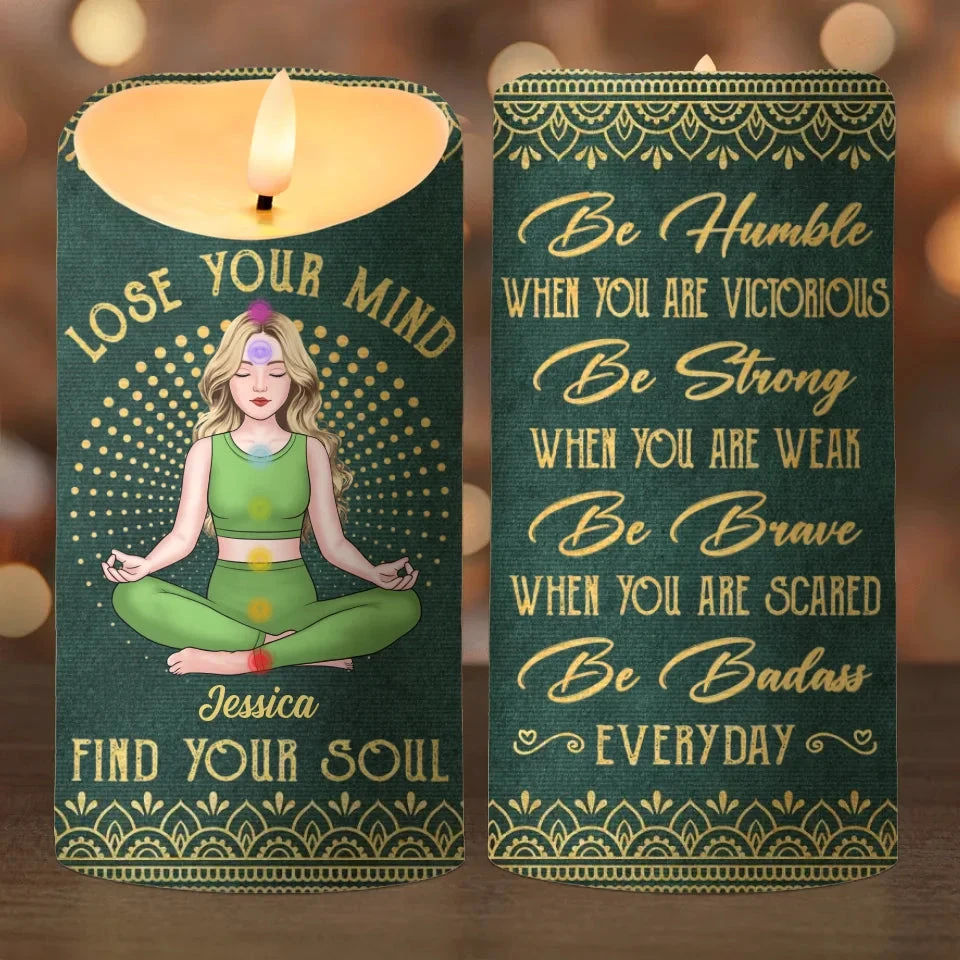 LOSE YOUR MIND
Jessica
FIND YOUR SOUL
Be Humble
WHEN YOU ARE VICTORIOUS
Be Strong
WHEN YOU ARE WEAK
Be Brave
WHEN YOU ARE SCARED
Be Badass
EVERYDAY